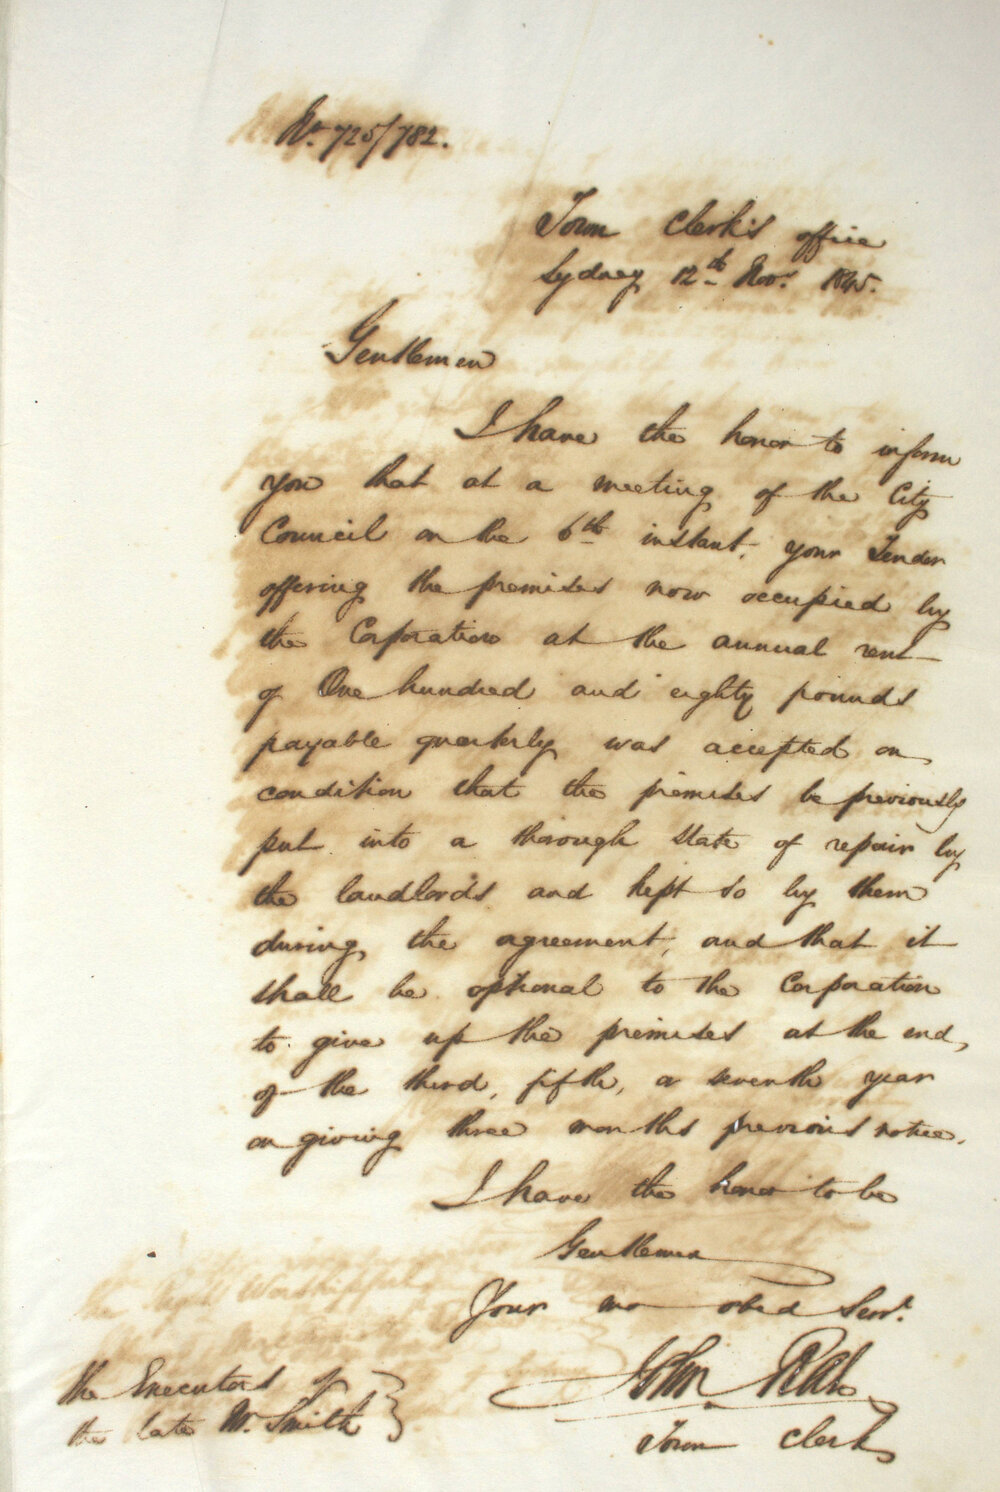 No. 725/782.
Town Clerk's office
Sydney 12th Novr. 1845.
Gentlemen
I have the honor to inform
you that at a meeting of the City
Council on the 6th instant, your Tender
offering the premises now occupied by
the Corporation at the annual rent
of One hundred and eighty pounds
payable quarterly was accepted on
condition that the premises be previously
put into a thorough state of repair by
the landlords and kept so by them
during the agreement, and that it
shall be optional to the Corporation
to give up the premises at the end,
of the third, fifth, or seventh year
on giving three months previous notice.
I have the honor to be
Gentlemen
Your mo obed Servt.
John Rae
Town Clerk
the Executors of
the late Wm. Smith
the Right Worshipful